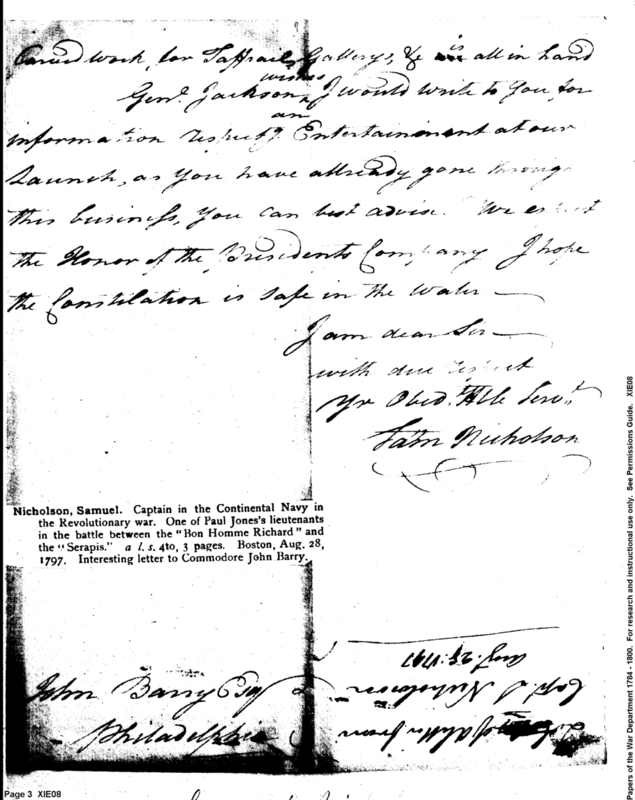 Carved work, for Taffrail, Gallerys, &c is all in hand
Genl. Jackson wishes I would write to you, for
information respectg. an Entertainment at our
Launch, as you have allready gone through
this business, you can best advise. We expect
the Honor of the Presidents Company I hope
the Constilation is safe in the water —
I am dear Sir —
with due respect
Yr Obedt. Hle Servt.
Saml Nicholson
Nicholson, Samuel. Captain in the Continental Navy in
the Revolutionary war. One of Paul Jones's lieutenants
in the battle between the "Bon Homme Richard" and
the "Serapis." a l. s. 4to, 3 pages. Boston, Aug. 28,
1797. Interesting letter to Commodore John Barry.
John Barry Esq
Philadelphia
Letter from
Capt. S Nicholson
Augt. 28: 1797
Page 3 XIE08
Papers of the War Department 1784 - 1800. For research and instructional use only. See Permissions Guide. XIE08